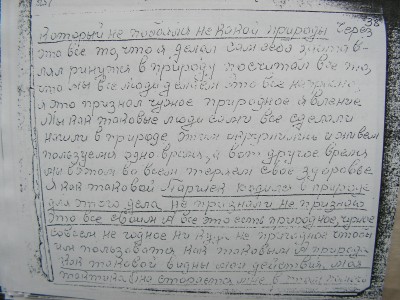 38
который не побоялся никакой природы через
это всё то, что я делал сам себя застав-
лял ринутся в природу посчитал всё то,
что мы все люди делаем это все напрасно,
я это признал чужое природное явление
Мы как таковые люди сами все сделали
нашли в природе этим окружились и живем
пользуемся одно время, а вот другое время
мы в этом во всем теряем свое здоровье
я как таковой Паршек родился в природе
для этого дела не признали не признаю
Это все своим А все это есть природное, чужое
совсем не годное ни куда не пригодное чтобы
им пользоватся как таковым А природа
как таковой видны мои действия, моя
тактика она старается мне в этом